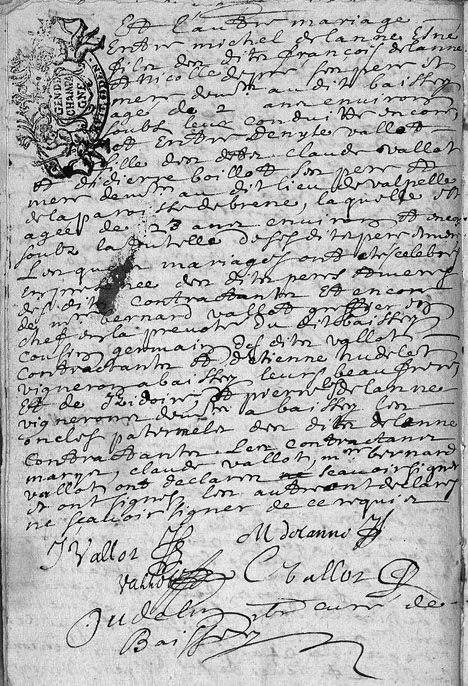 Et l'autre mariage
Entre michel delanne Esne
fils des dits françois delanne
et Nicolle depre ses pere et
mere demt au dit baissey
agé de 2 ans environ
soubs leur conduitte encor
et Entre denyse vallot
fille des dits claude vallot
et didierre boillot ses pere et
mere demt au dit lieu de valpelle
de la paroisse de brene, laquelle est
agée de 23 ans environ et encor
soubs la tutelle de ses dits pere et mere
Lesquels mariages ont etes celebres
en presence des dits peres et meres
des dits contractants et encor
de mre bernard vallot greffier en
chef de la prevoté du dit baissey
cousin germain des dits vallot
contractants et d'etienne nudelot
vigneron a baissey leurs beau freres
Et de Isidoire et pierre delanne
vignerons demts a baissey les
oncles paternels des dits delanne
contractants. Les contractans
maryes, claude vallot, mre bernard
vallot ont declares scavoir signer
et ont signes les autres ont declares
ne scavoir signer de ce requis
J Vallot M delanne
Vallot C Vallot
ptre cure de
Baissey
GENER
CHAMPA
GNE